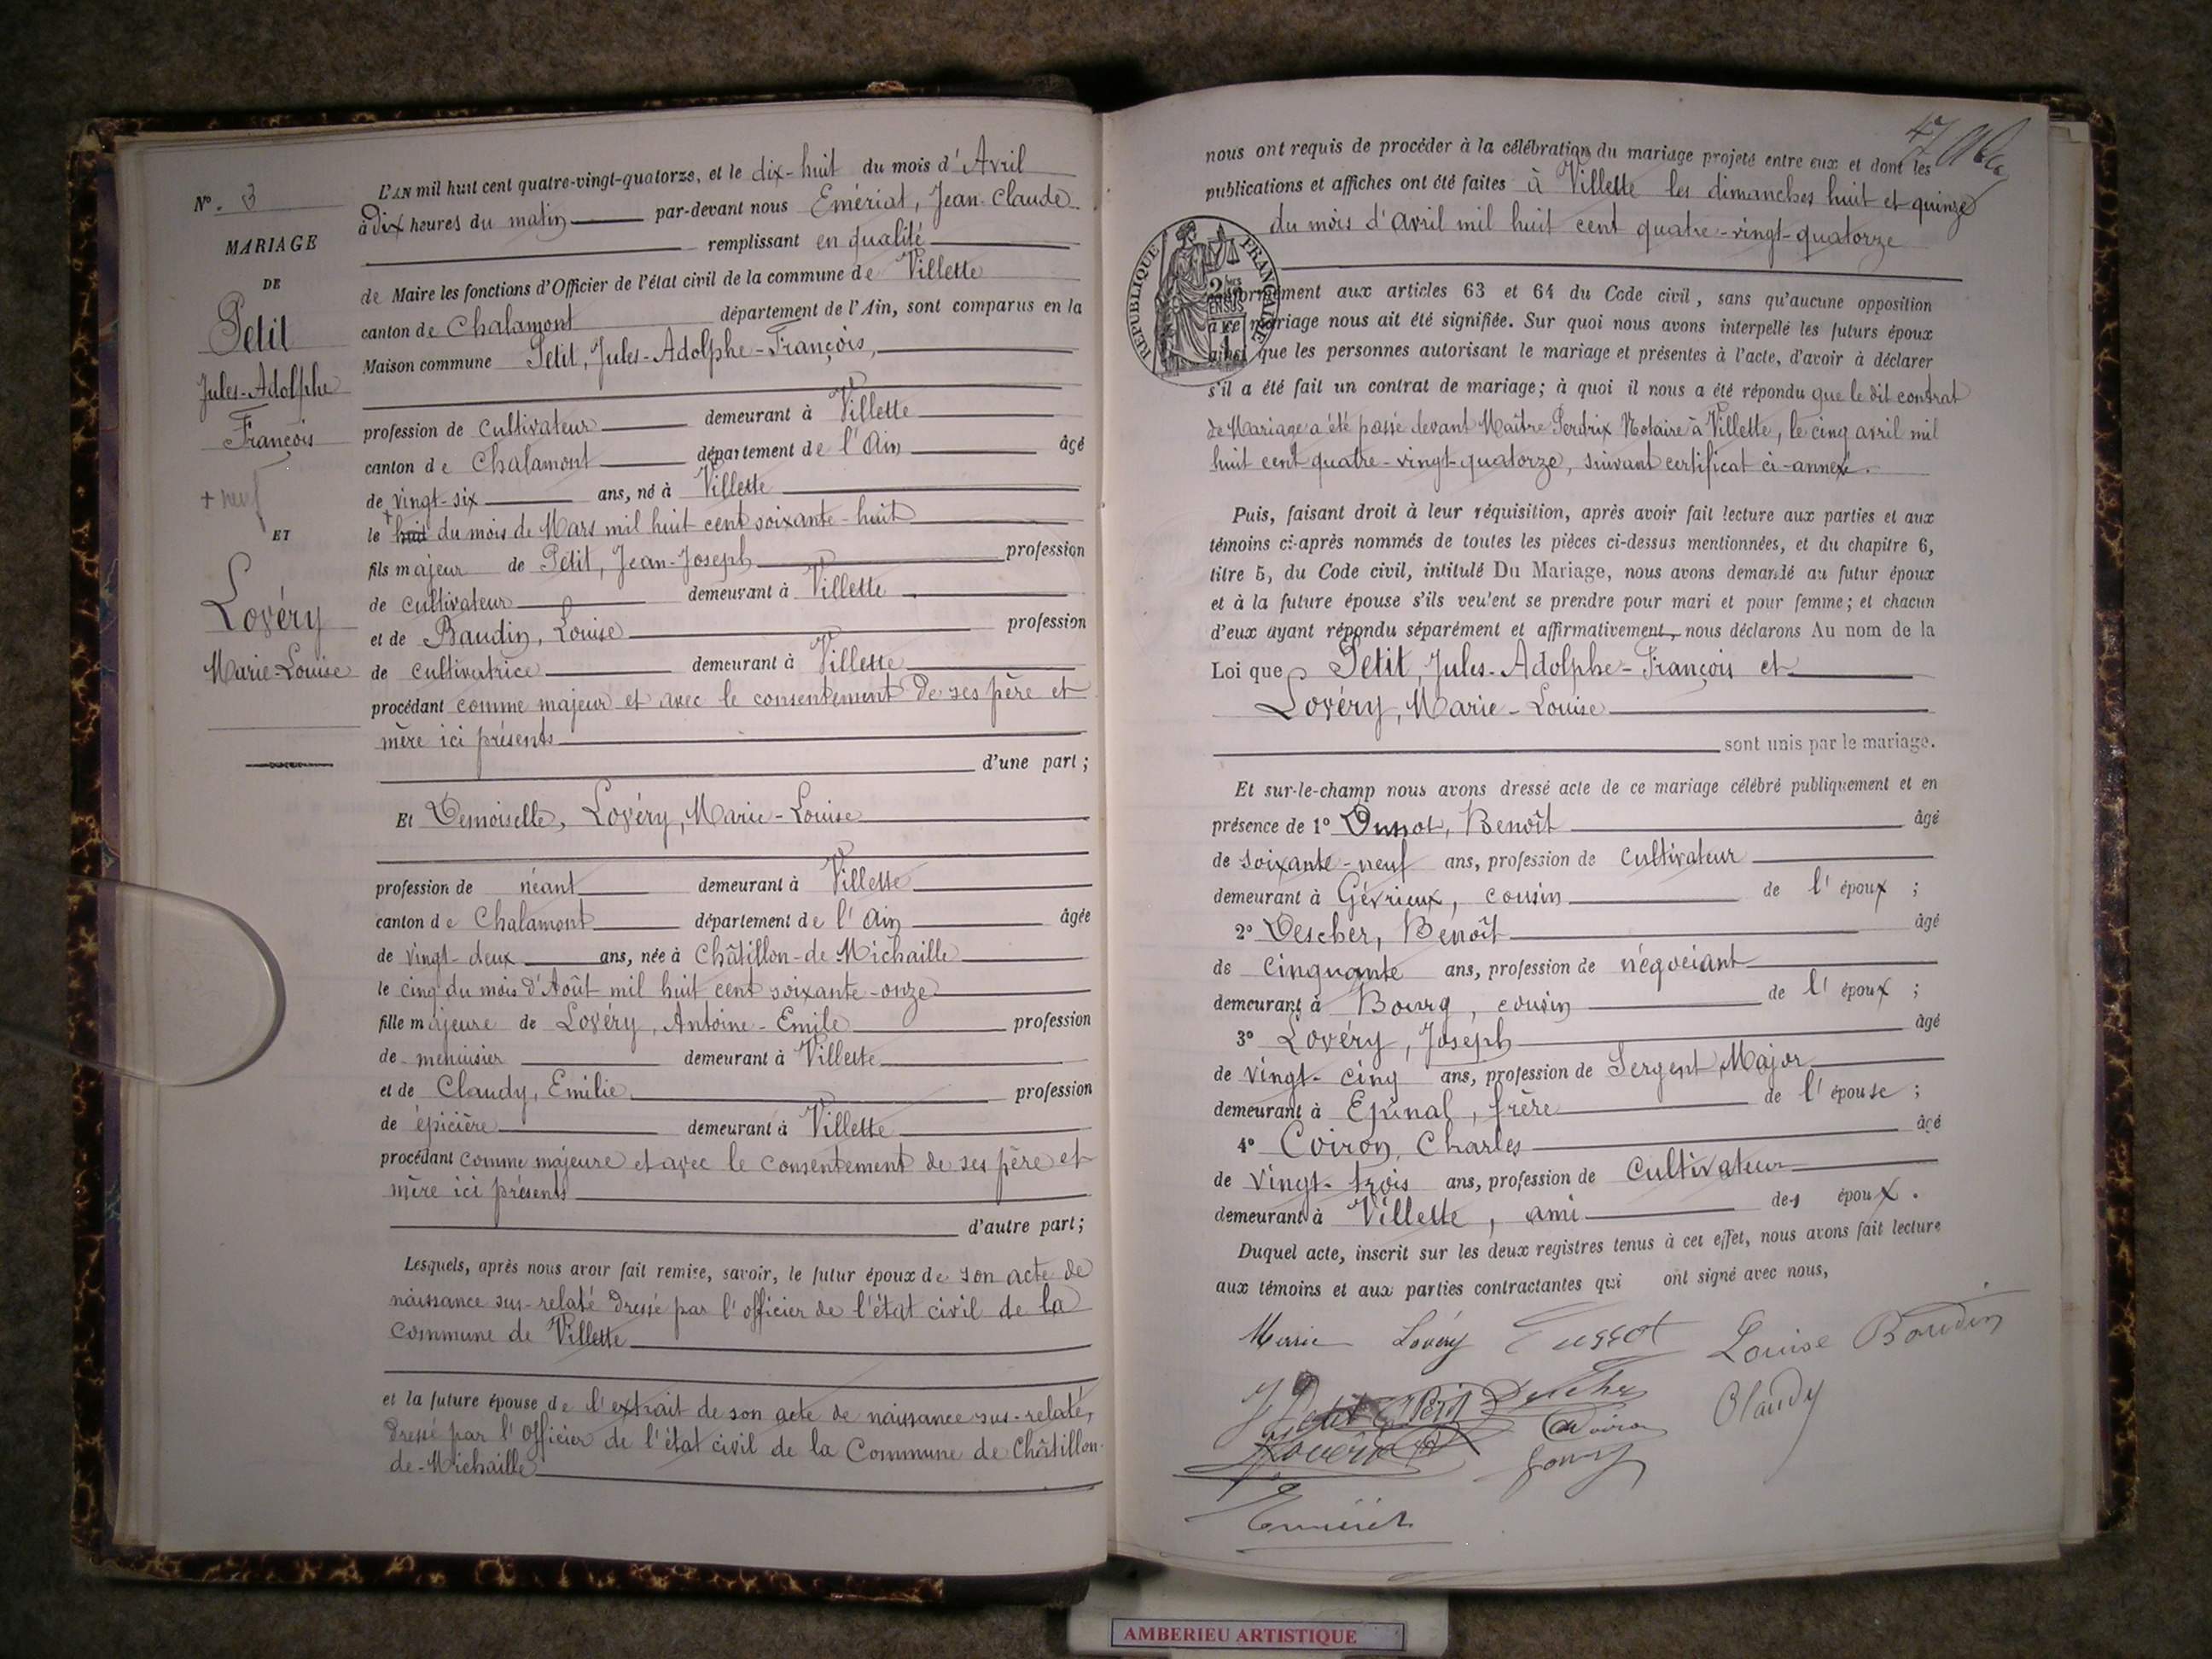 N°. 3
MARIAGE
DE
Petit
Jules-Adolphe
François
+ neuf
ET
Lovéry
Marie-Louise
L'AN mil huit cent quatre-vingt-quatorze, et le dix-huit du mois d'Avril
à dix heures du matin par-devant nous Emériat, Jean-Claude
remplissant en qualité
de Maire les fonctions d'Officier de l'état civil de la commune de Villette
canton de Chalamont département de l'Ain, sont comparus en la
Maison commune Petit, Jules-Adolphe-François,
profession de cultivateur demeurant à Villette
canton de Chalamont département de l'Ain âgé
de vingt-six ans, né à Villette
le + huit du mois de Mars mil huit cent soixante-huit
fils majeur de Petit, Jean-Joseph profession
de cultivateur demeurant à Villette
et de Baudin, Louise profession
de cultivatrice demeurant à Villette
procédant comme majeur et avec le consentement de ses père et
mère ici présents
d'une part ;
Et Demoiselle, Lovéry, Marie-Louise
profession de néant demeurant à Villette
canton de Chalamont département de l'Ain âgée
de vingt-deux ans, née à Châtillon-de-Michaille
le cinq du mois d'Août mil huit cent soixante-onze
fille majeure de Lovéry, Antoine-Emile profession
de menuisier demeurant à Villette
et de Claudy, Emilie profession
de épicière demeurant à Villette
procédant comme majeure et avec le consentement de ses père et
mère ici présents
d'autre part ;
Lesquels, après nous avoir fait remise, savoir, le futur époux de son acte de
naissance sus-relaté dressé par l'officier de l'état civil de la
Commune de Villette
et la future épouse de l'extrait de son acte de naissance sus-relaté,
dressé par l'Officier de l'état civil de la Commune de Châtillon-
de-Michaille
47
nous ont requis de procéder à la célébration du mariage projeté entre eux et dont les
publications et affiches ont été faites à Villette les dimanches huit et quinze
du mois d'avril mil huit cent quatre-vingt-quatorze
RÉPUBLIQUE FRANÇAISE
conformément aux articles 63 et 64 du Code civil, sans qu'aucune opposition
à ce mariage nous ait été signifiée. Sur quoi nous avons interpellé les futurs époux
ainsi que les personnes autorisant le mariage et présentes à l'acte, d'avoir à déclarer
s'il a été fait un contrat de mariage ; à quoi il nous a été répondu que le dit contrat
de Mariage a été passé devant Maître Perdrix Notaire à Villette, le cinq avril mil
huit cent quatre-vingt-quatorze, suivant certificat ci-annexé.
Puis, faisant droit à leur réquisition, après avoir fait lecture aux parties et aux
témoins ci-après nommés de toutes les pièces ci-dessus mentionnées, et du chapitre 6,
titre 5, du Code civil, intitulé Du Mariage, nous avons demandé au futur époux
et à la future épouse s'ils veulent se prendre pour mari et pour femme ; et chacun
d'eux ayant répondu séparément et affirmativement, nous déclarons Au nom de la
Loi que Petit, Jules-Adolphe-François et
Lovéry, Marie-Louise
sont unis par le mariage.
Et sur-le-champ nous avons dressé acte de ce mariage célébré publiquement et en
présence de 1° Benoît âgé
de soixante-neuf ans, profession de cultivateur
demeurant à Gévrieux, cousin de l'époux ;
2° Descher, Benoît âgé
de cinquante ans, profession de négociant
demeurant à Bourg, cousin de l'époux ;
3° Lovéry, Joseph âgé
de vingt-cinq ans, profession de Sergent Major
demeurant à Epinal, frère de l'épouse ;
4° Coiron, Charles âgé
de vingt-trois ans, profession de cultivateur
demeurant à Villette, ami des époux.
Duquel acte, inscrit sur les deux registres tenus à cet effet, nous avons fait lecture
aux témoins et aux parties contractantes qui ont signé avec nous,
Marie Lovéry Louise Baudin
Claudy
Coiron
Emériat
AMBERIEU ARTISTIQUE